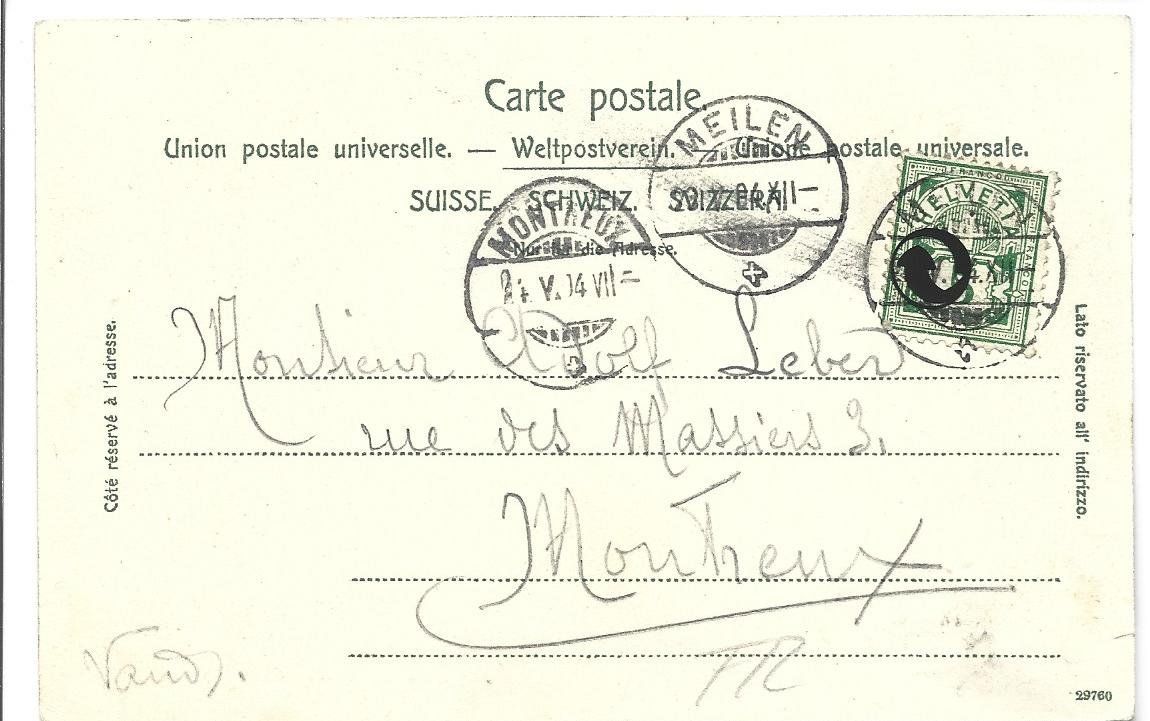 Carte postale.
Union postale universelle. — Weltpostverein. — Unione postale universale.
SUISSE. SCHWEIZ. SVIZZERA.
Nur für die Adresse.
MEILEN
04.XII–
MONTREUX
V.04 VII–
FRANCO
HELVETIA
FRANCO
Côté réservé à l'adresse.
Lato riservato all' indirizzo.
Monsieur Adolf Leber
rue des Massiers 3,
Montreux
Vaud.
29760